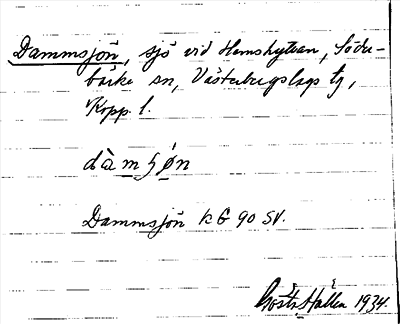 Dammsjön, sjö vid Hemshyttan, Söder-
bärke sn, Västerbergslags tg,
Kopp. l.
dàmʃøn
Dammsjön kG 90 SV.
Gösta Hallén 1934.